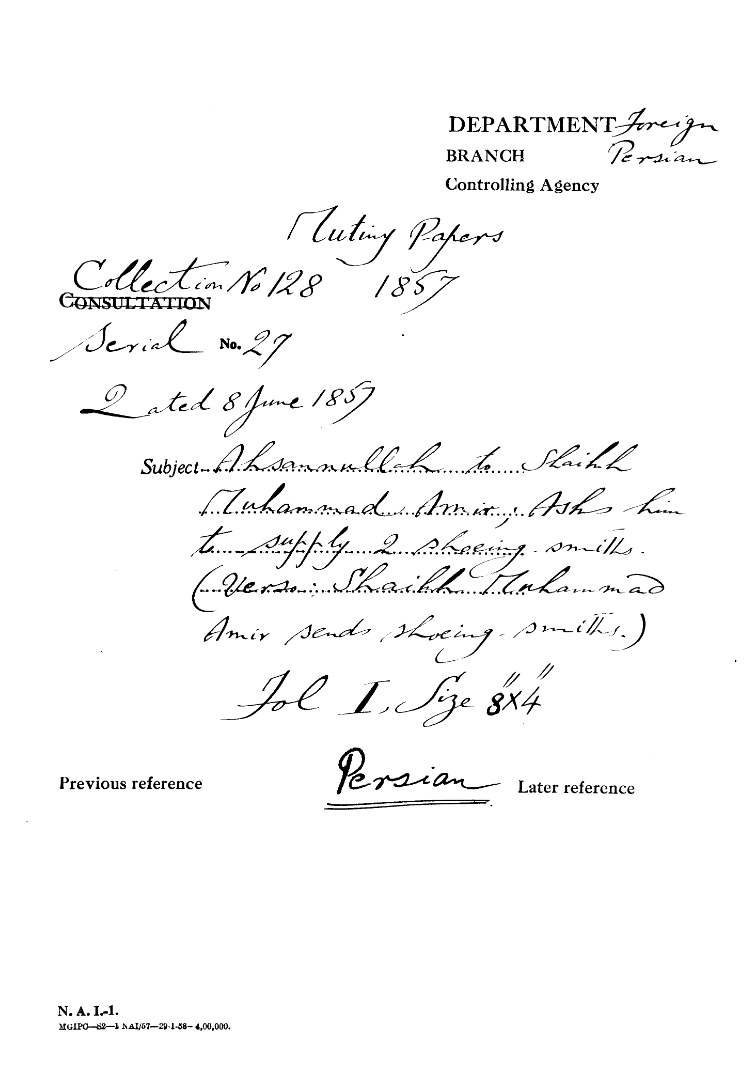 DEPARTMENT Foreign
BRANCH Persian
Controlling Agency
Mutiny Papers
Collection No 128 1857
CONSULTATION
Serial No. 27
Dated 8 June 1857
Subject Ahsannullah to Shaikh
Muhammad Amir; Asks him
to supply 2 shoeing-smiths.
(Verso: Shaikh Muhammad
Amir sends shoeing-smiths.)
Fol I, Size 8"x4"
Previous reference Persian Later reference
N. A. I.-1.
MGIPC—S2—1 NAI/57—29-1-58—4,00,000.